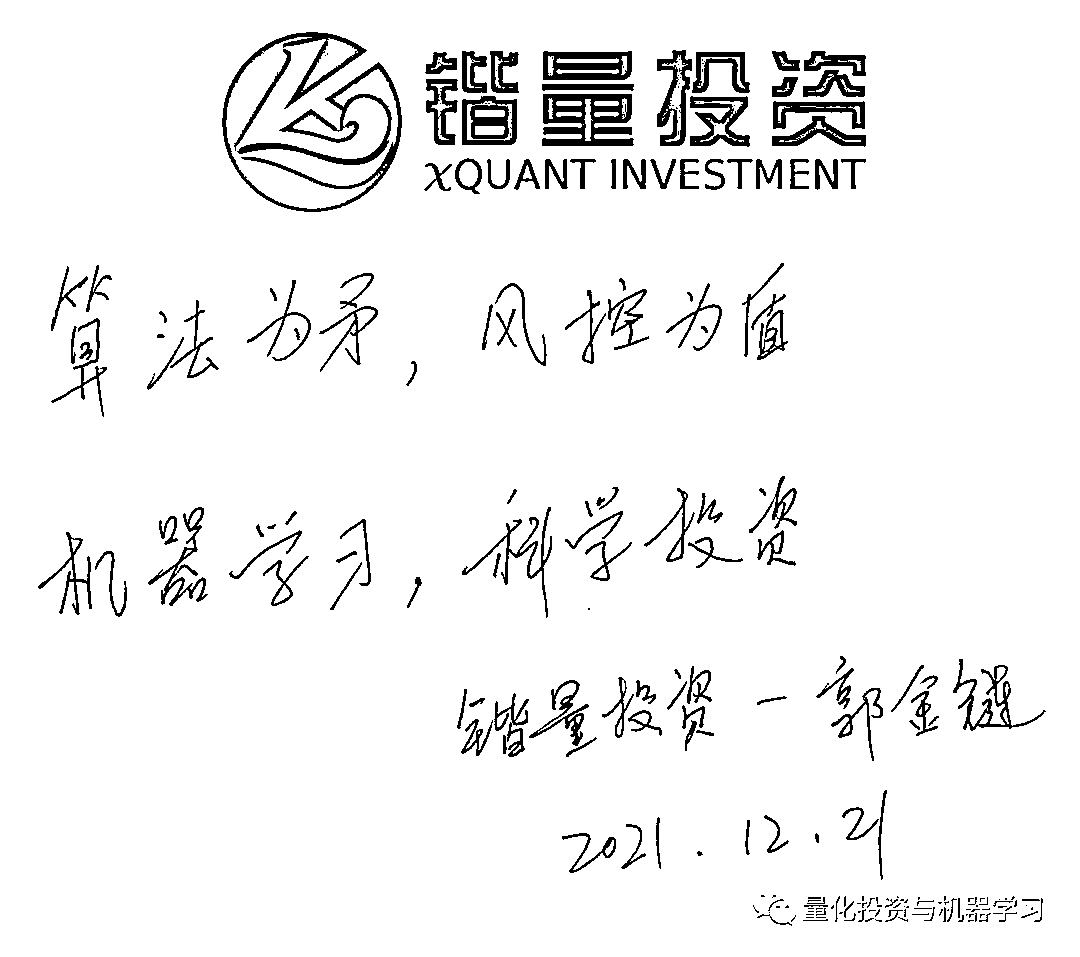 锴量投资
χQUANT INVESTMENT
算法为矛，风控为盾
机器学习，科学投资
锴量投资 — 郭金
2021.12.21
量化投资与机器学习